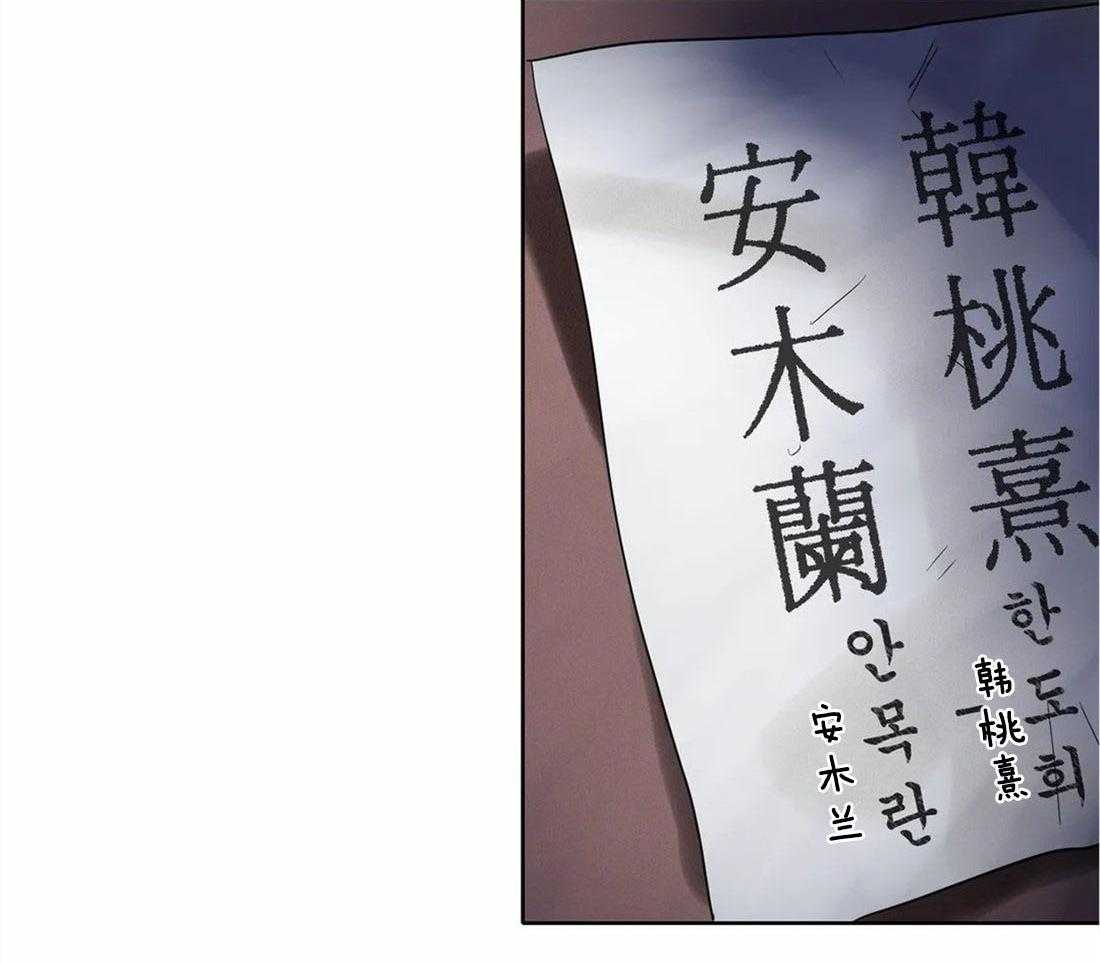 韓桃熹
한도희
韩桃熹
安木蘭
안목란
安木兰